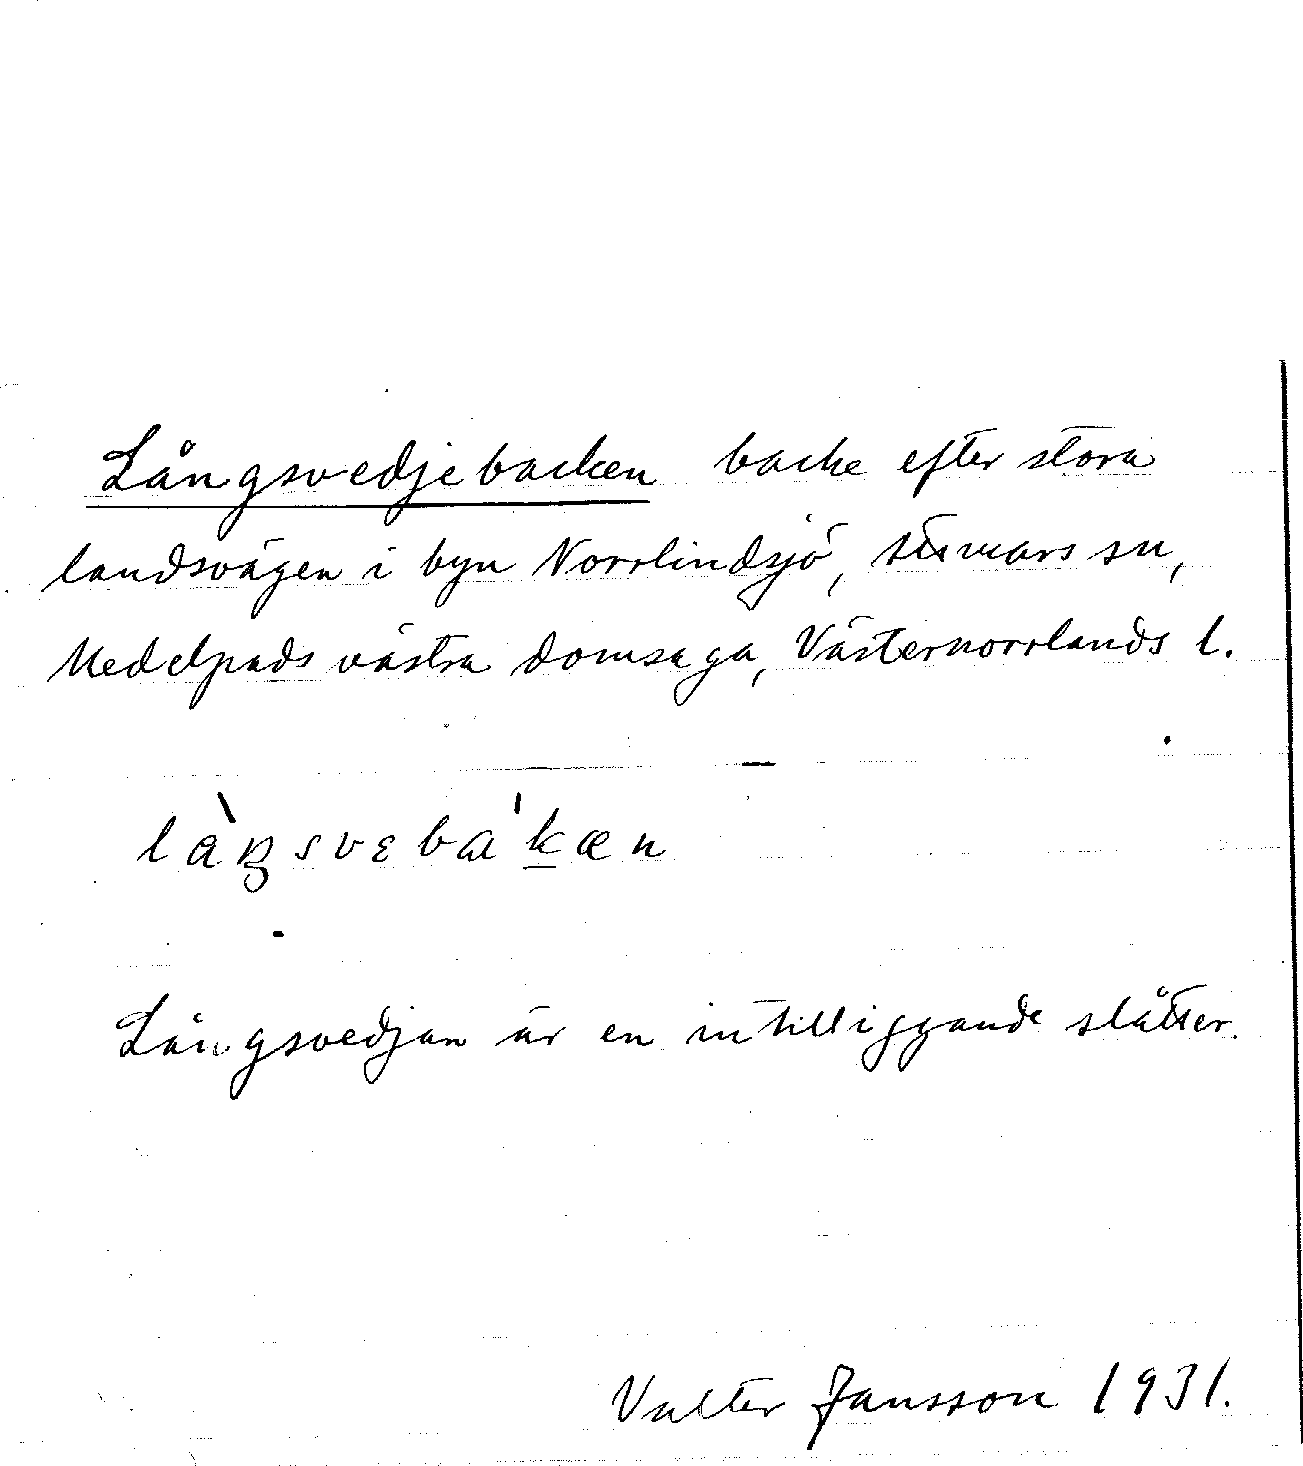 Långsvedjebacken backe efter stora
landsvägen i byn Norrlindsjö, sn,
Medelpads västra domsaga, Västernorrlands l.
Långsvedjan är en intilliggande slåtter.
Valter Jansson 1931.